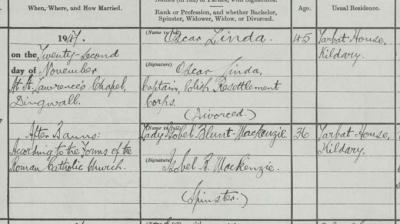 When, Where, and How Married.
Rank or Profession, and whether Bachelor,
Spinster, Widower, Widow, or Divorced.
Age.
Usual Residence.
1947.
on the Twenty-second
day of November
At St. Lawrence's Chapel,
Dingwall.
After Banns:
According to the Forms of the
Roman Catholic Church.
(Name in full)
Oscar Linda
(Signature)
Oscar Linda,
Captain, Polish Resettlement
Corps.
(Divorced)
Lady Isobel Blunt-Mackenzie
(Signature)
Isobel B. Mackenzie.
(Spinster)
45
36
Tarbat House,
Kildary.
Tarbat House,
Kildary.